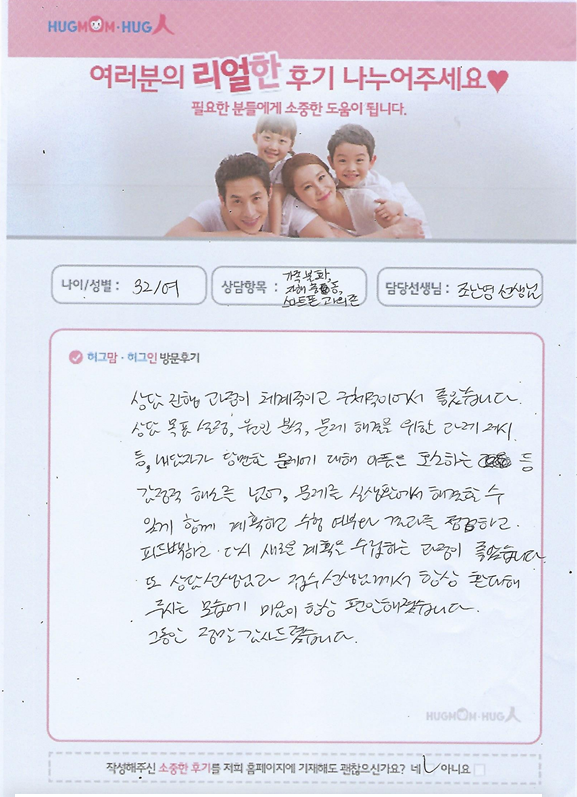 HUGMOM·HUG人
여러분의 리얼한 후기 나누어주세요♥
필요한 분들에게 소중한 도움이 됩니다.
나이/성별 : 32/여
상담항목 : 가족불화, 자해 충동, 스마트폰 과의존
담당선생님 : 조난영 선생님
허그맘·허그인 방문후기
상담 진행 과정이 체계적이고 구체적이어서 좋았습니다.
상담 목표 설정, 원인 분석, 문제 해결을 위한 과제 제시
등, 내담자가 당면한 문제에 대해 아픔을 호소하는 등
감정적 해소를 넘어, 문제를 실생활에서 해결할 수
있게 함께 계획하고 수행 여부와 결과를 점검하고.
피드백하고. 다시 새로운 계획을 수립하는 과정이 좋았습니다.
또 상담선생님과 접수선생님께서 항상 환대해
주시는 모습에 마음이 항상 편안해졌습니다.
그동안 정말 감사드렸습니다.
HUGMOM·HUG人
작성해주신 소중한 후기를 저희 홈페이지에 기재해도 괜찮으신가요? 네 아니요